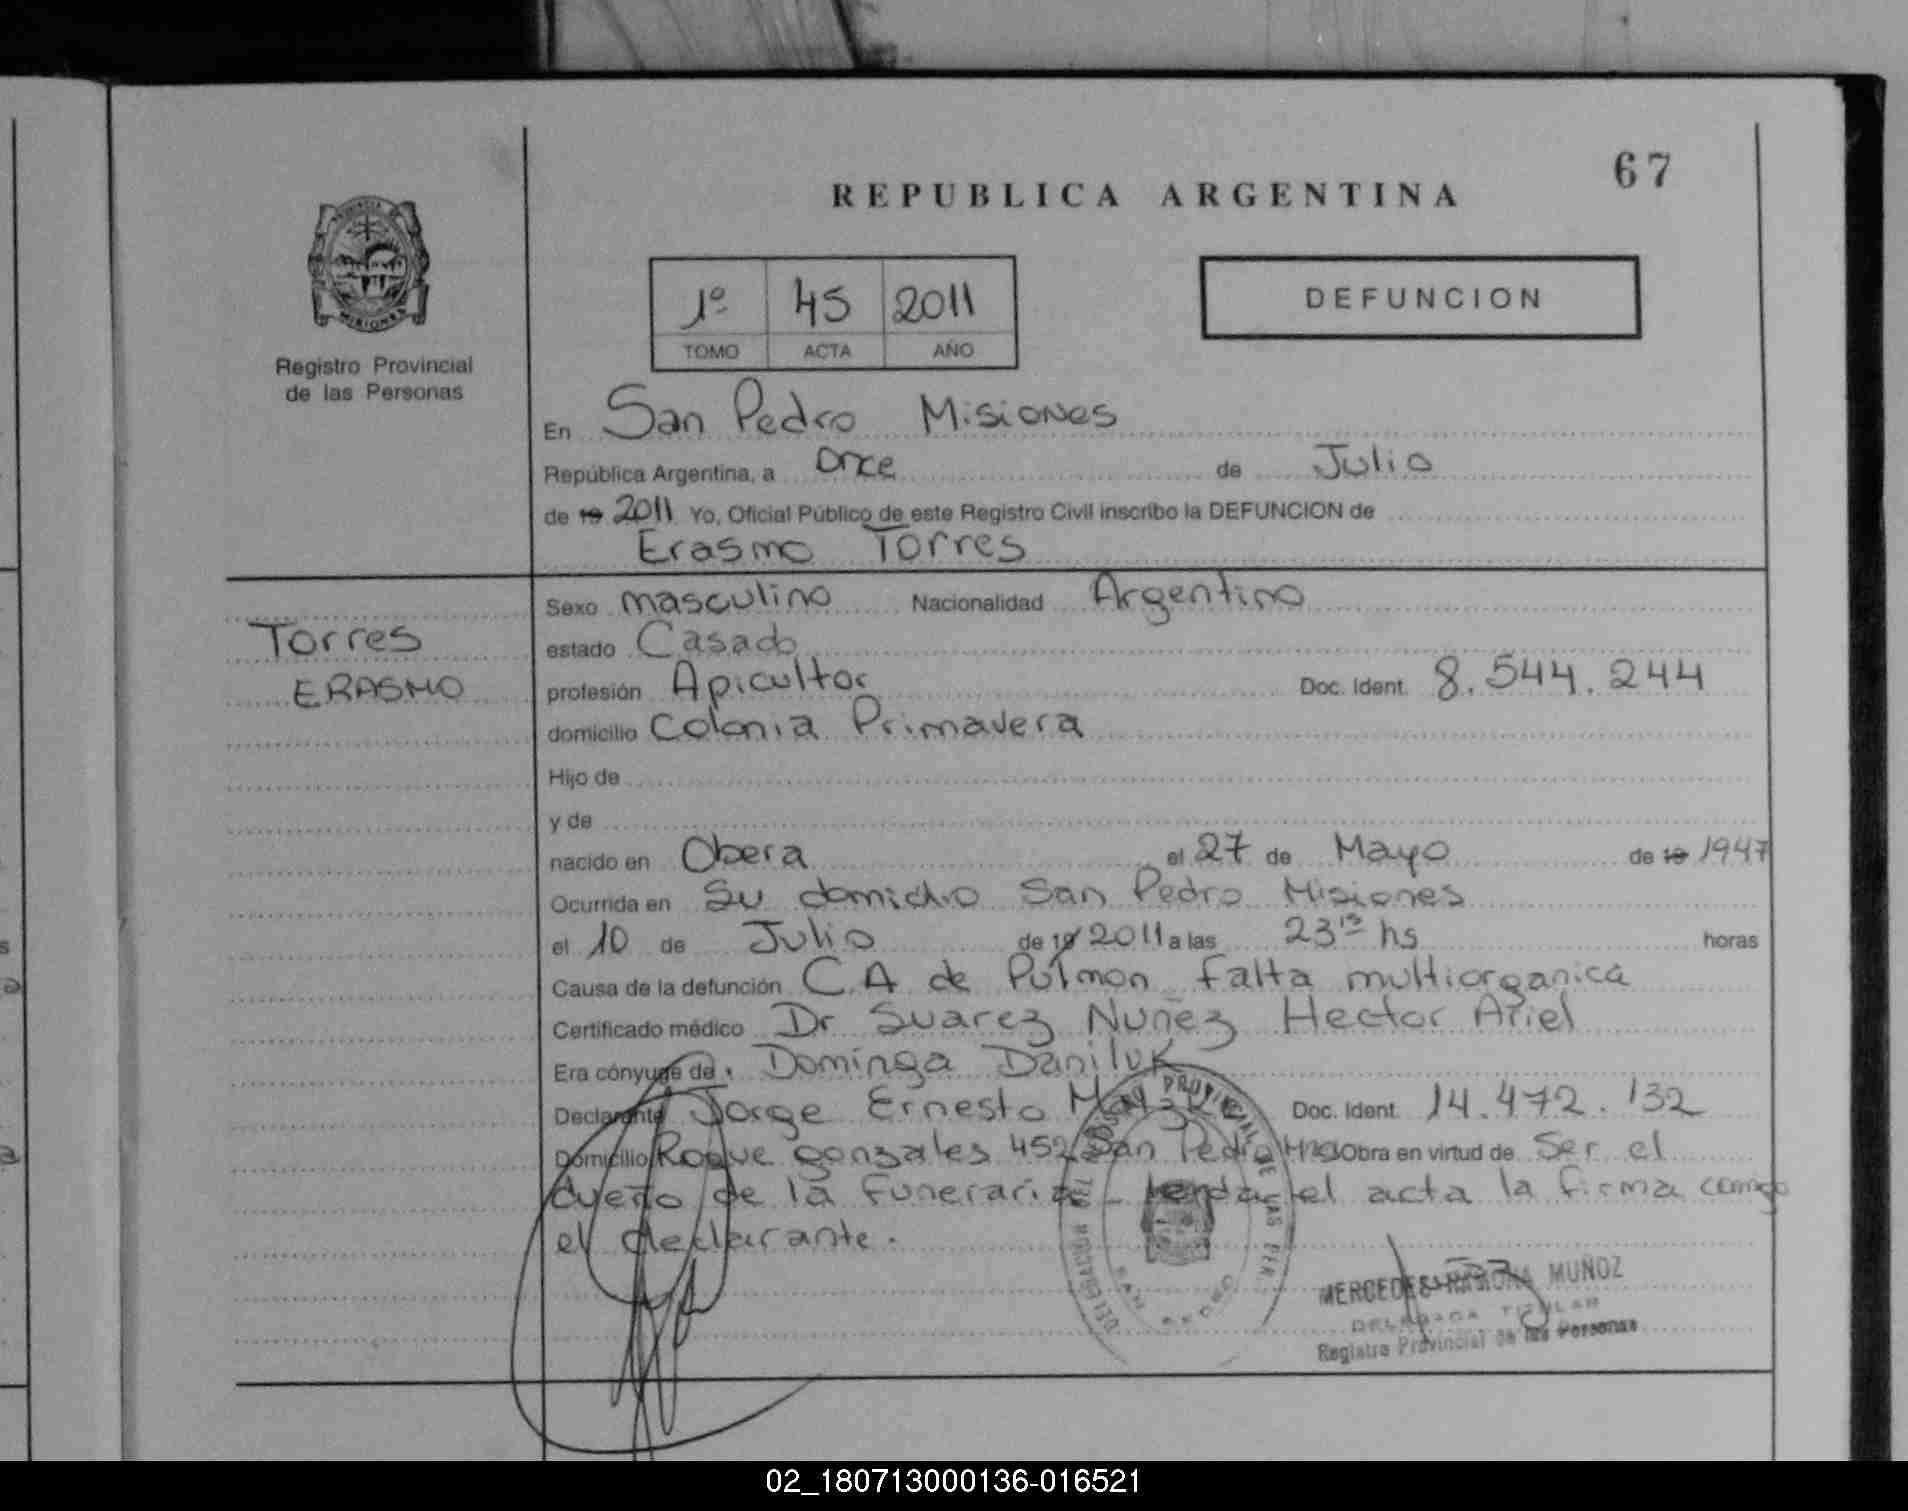 67
REPUBLICA ARGENTINA
PROVINCIA DE
MISIONES
Registro Provincial
de las Personas
1º 45 2011
TOMO ACTA AÑO
DEFUNCION
En San Pedro Misiones
República Argentina, a Once de Julio
de 19 2011 Yo, Oficial Público de este Registro Civil inscribo la DEFUNCION de
Erasmo Torres
Torres
ERASMO
Sexo masculino Nacionalidad Argentino
estado Casado
profesión Apicultor Doc. Ident. 8.544.244
domicilio Colonia Primavera
Hijo de
y de
nacido en Obera el 27 de Mayo de 19 1947
Ocurrida en Su domicilio San Pedro Misiones
el 10 de Julio de 19 2011 a las 23 15 hs horas
Causa de la defunción C.A de Pulmon falta multiorganica
Certificado médico Dr Suarez Nuñez Hector Ariel
Era cónyuge de Dominga Daniluk
Declarante Jorge Ernesto Doc. Ident. 14.472.132
Domicilio Roque gonzales 452 San Pedro Obra en virtud de Ser el
dueño de la funeraria el acta la firma comigo
el declarante.
MERCEDES RAMONA MUÑOZ
DELEGADA TITULAR
Registro Provincial de las Personas
02_180713000136-016521